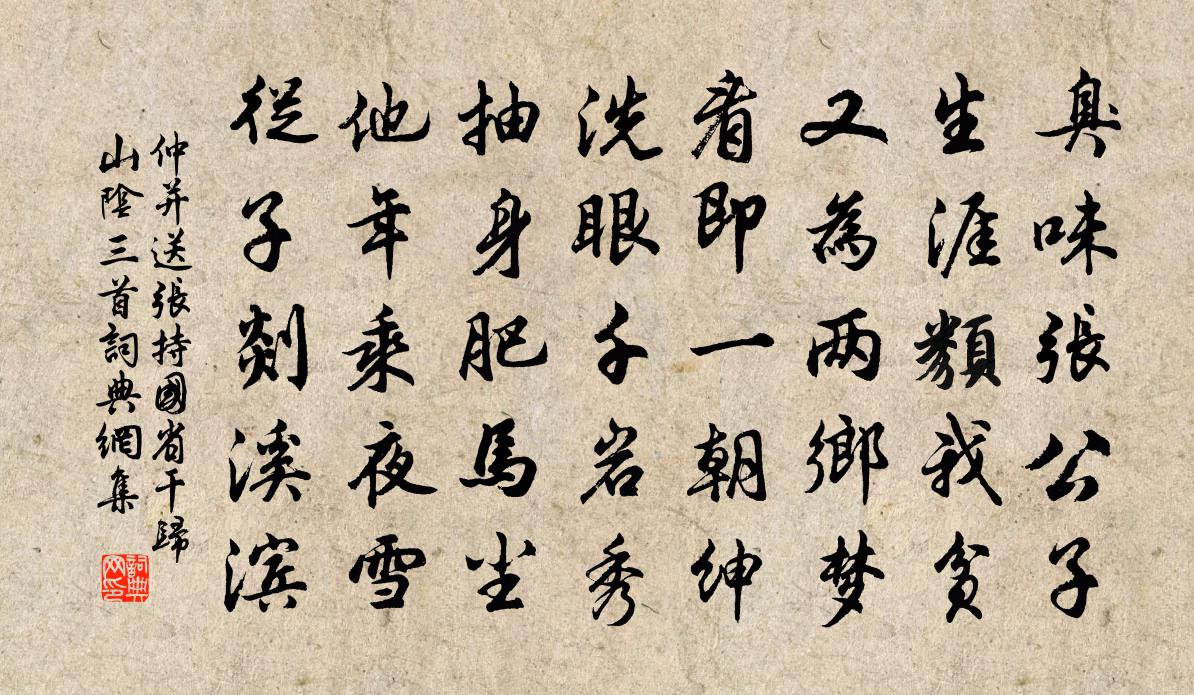 臭味張公子
生涯類我貧
又為两鄉梦
看即一朝紳
洗眼千岩秀
抽身肥馬尘
他年乘夜雪
從子剡溪滨
仲并送張持國省干歸
山陰三首詞典網集
詞典網印